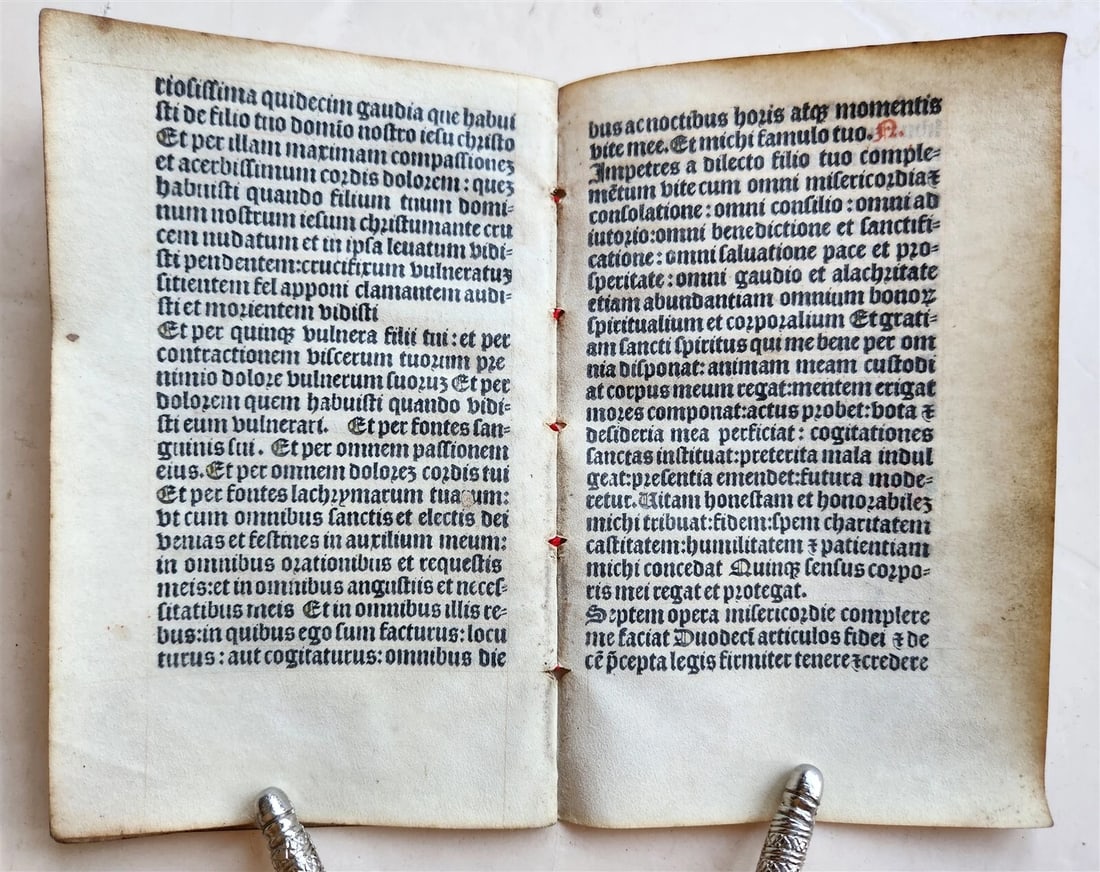 riosissima quidecim gaudia que habui
sti de filio tuo domĩo nostro iesu christo
Et per illam maximam compassioneꝫ
et acerbissimum cordis dolorem : queꝫ
habuisti quando filium tuum domi-
num nostrum iesum christumante cru
cem nudatum et in ipsa leuatum vidi-
sti pendentem:crucifixum vulneratuꝫ
sitientem fel apponi clamantem audi-
sti et morientem vidisti
Et per quinqꝫ vulnera filii tui : et per
contractionem viscerum tuorum pre
nimio dolore vulnerum suoruꝫ Et per
dolorem quem habuisti quando vidi-
sti eum vulnerari. Et per fontes san-
guinis sui . Et per omnem passionem
eius. Et per omnem doloreꝫ cordis tui
Et per fontes lachrymarum tuarum:
vt cum omnibus sanctis et electis dei
venias et festines in auxilium meum:
in omnibus orationibus et requestis
meis:et in omnibus angustiis et neces-
sitatibus meis Et in omnibus illis re-
bus:in quibus ego sum facturus: locu
turus : aut cogitaturus: omnibus die
bus ac noctibus horis atqꝫ momentis
vite mee. Et michi famulo tuo. N.
Impetres a dilecto filio tuo comple-
mẽtum vite cum omni misericordia ⁊
consolatione : omni consilio : omni ad
iutorio:omni benedictione et sanctifi-
catione : omni saluatione pace et pro-
speritate : omni gaudio et alachritate
etiam abundantiam omnium bonoꝝ
spiritualium et corporalium Et grati-
am sancti spiritus qui me bene per om
nia disponat: animam meam custodi
at corpus meum regat:mentem erigat
mores componat:actus probet: vota ⁊
desideria mea perficiat : cogitationes
sanctas instituat:preterita mala indul
geat:presentia emendet:futura mode-
retur. Uitam honestam et honorabileꝫ
michi tribuat:fidem:spem charitatem
castitatem:humilitatem ⁊ patientiam
michi concedat Quinqꝫ sensus corpo-
ris mei regat et protegat.
Septem opera misericordie complere
me faciat Duodecĩ articulos fidei ⁊ de
cẽ p̃cepta legis firmiter tenere ⁊ credere